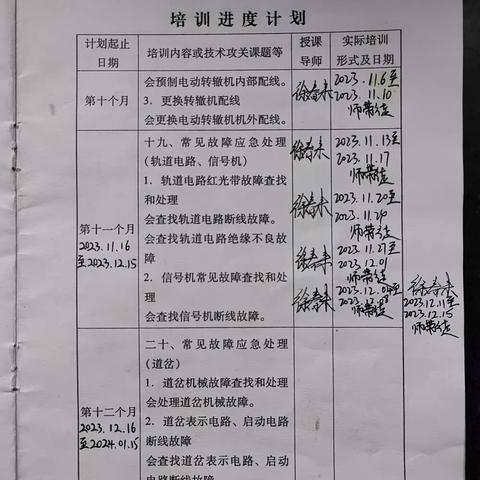 培训进度计划
计划起止
日期
培训内容或技术攻关课题等
授课
导师
实际培训
形式及日期
第十个月
会预制电动转辙机内部配线。
3. 更换转辙机配线
会更换电动转辙机机外配线。
徐春来
2023.11.6至
2023.11.10
师带徒
第十一个月
2023.11.16
至2023.12.15
十九、常见故障应急处理
(轨道电路、信号机)
1. 轨道电路红光带故障查找
和处理
会查找轨道电路断线故障。
会查找轨道电路绝缘不良故
障
2. 信号机常见故障查找和处
理
会查找信号机断线故障。
徐春来
2023.11.13至
2023.11.17
师带徒
徐春来
2023.11.20至
2023.11.24
师带徒
徐春来
2023.11.27至
2023.12.01
师带徒
徐春来
2023.12.04至
2023.12.08
师带徒
徐春来
2023.12.11至
2023.12.15
师带徒
第十二个月
2023.12.16
至2024.01.15
二十、常见故障应急处理
(道岔)
1. 道岔机械故障查找和处理
会处理道岔机械故障。
2. 道岔表示电路、启动电路
断线故障
会查找道岔表示电路、启动
电路断线故障